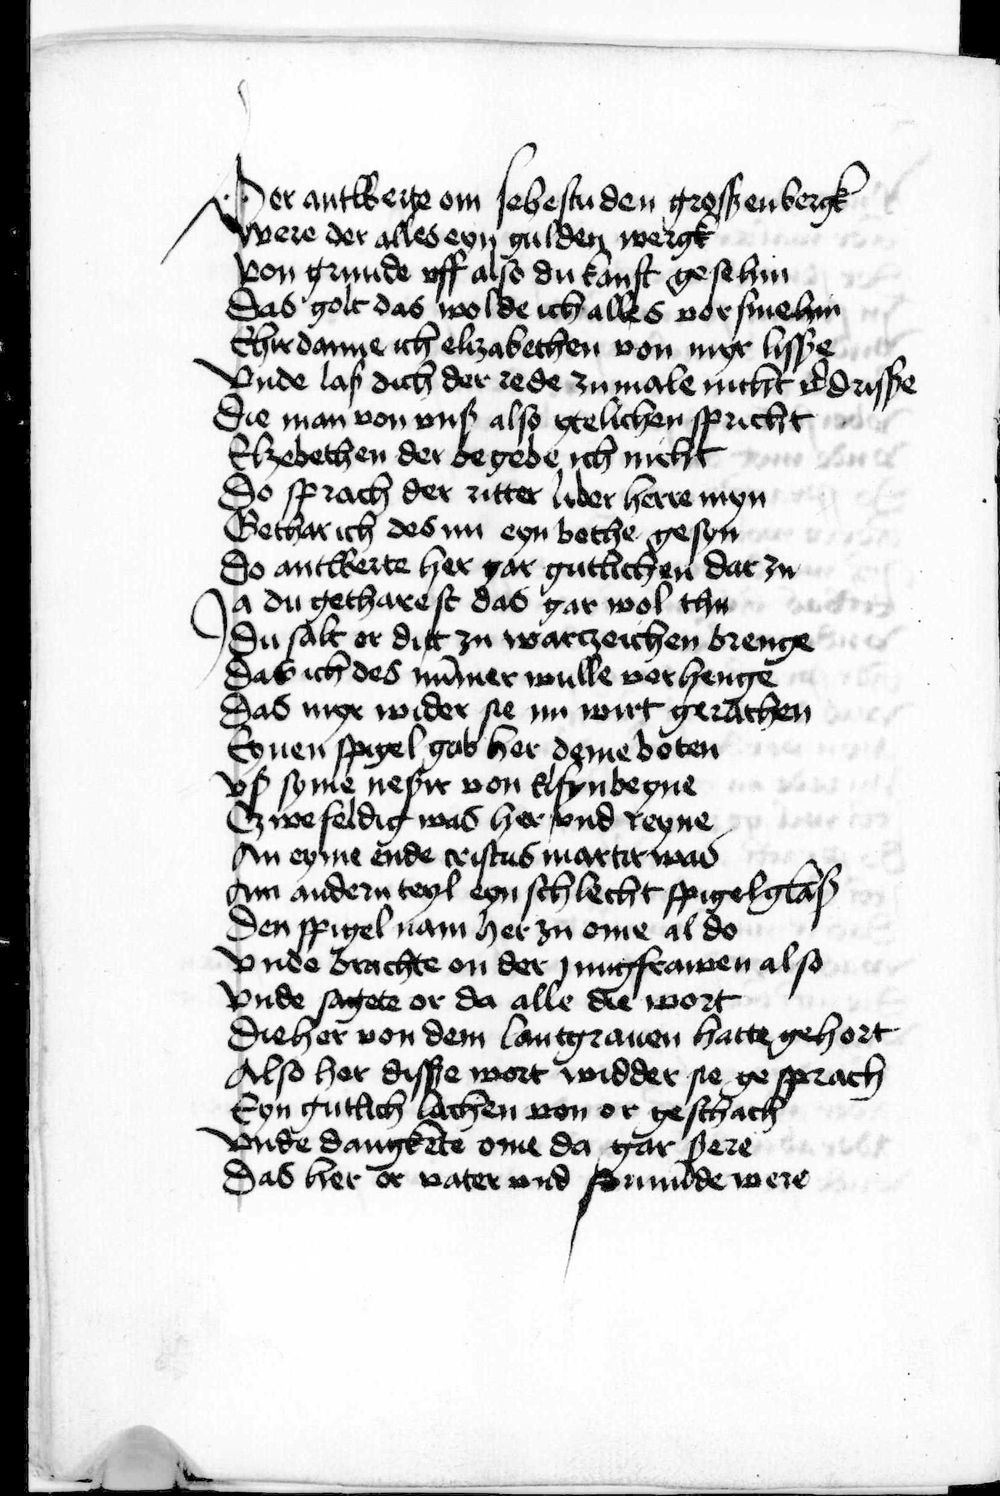 Her antwerte om sehestu den grosszen bergk
Were der alles eyn gulden wergk
Von grunde uff also du kanst gesehin
Das golt das wolde ich alles vorsmehin
Ehir danne ich elizabethen von myr lissze
Vnde lasz dich der rede zu male nicht vordrissze
Die man von vnsz also gelichen spricht
Elzebethen der begebe ich nicht
Do sprach der ritter liber herre myn
Gethar ich des nu eyn bothe gesyn
Do antwerte her gar gutlichen dar zu
Ja du getharest das gar wol thu
Du salt or dit zu wartzeichen brenge
Das ich des nümer wulle vorhenge
Das myr wider sie nu wirt gerathen
Eynen spigel gab her deme boten
Vsz syme neszir von elfynbeyne
Czwefeldig was her vnd reyne
An eyme ende cristus martir was
Am andern teyl eyn schlecht spigelglasz
Den spigel nam her zu ome al do
Vnde brachte on der jungfrawen also
Vnde sagete or da alle die wort
Die her von dem lantgrauen hatte gehort
Also her dissze wort widder sie gesprach
Eyn gutlich lachen von or geschach
Vnde dangkete ome da gar szere
Das her or vater vnd frunde were